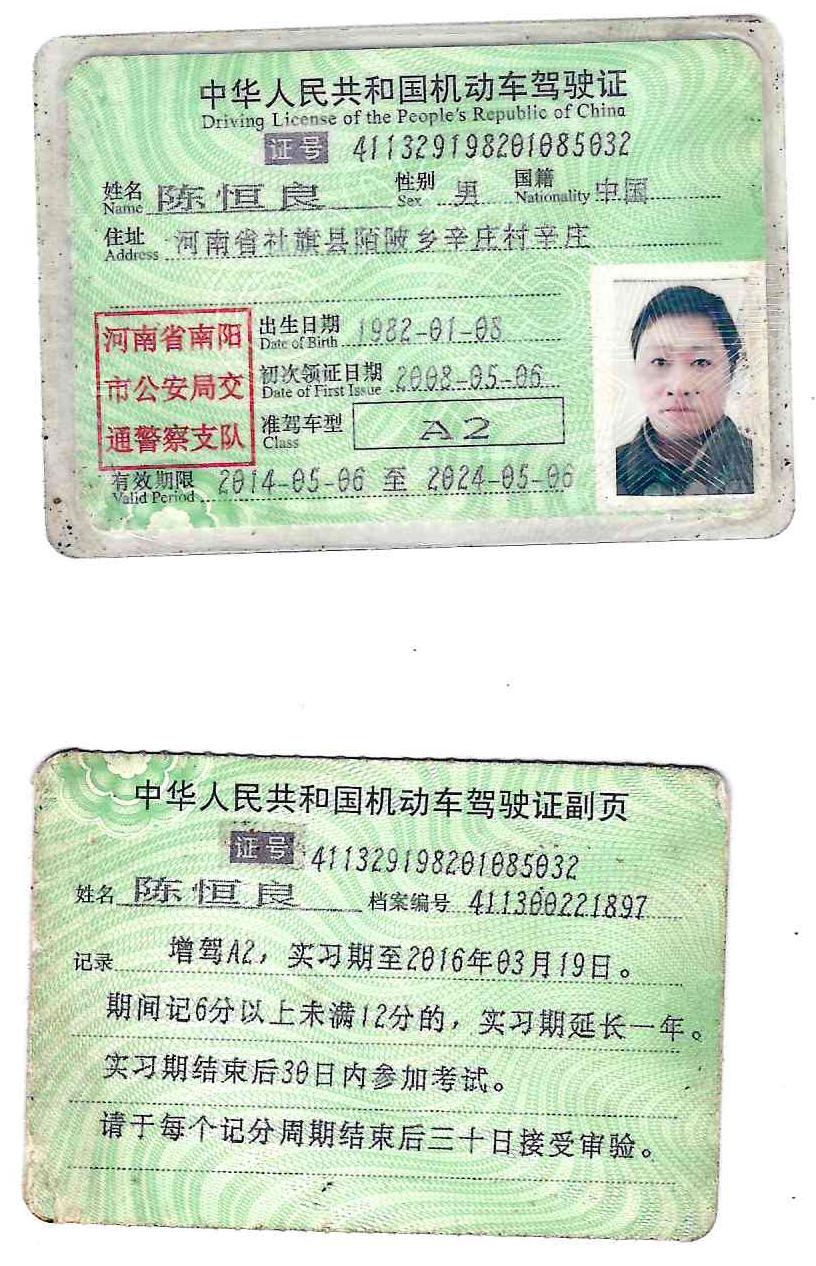 中华人民共和国机动车驾驶证
Driving License of the People's Republic of China
证号 411329198201085032
姓名 Name 陈恒良 性别 Sex 男 国籍 Nationality 中国
住址 Address 河南省社旗县陌陂乡辛庄村辛庄
河南省南阳
市公安局交
通警察支队
出生日期 Date of Birth 1982-01-08
初次领证日期 Date of First Issue 2008-05-06
准驾车型 Class A2
有效期限 Valid Period 2014-05-06 至 2024-05-06
中华人民共和国机动车驾驶证副页
证号 411329198201085032
姓名 陈恒良 档案编号 411300221897
记录 增驾A2，实习期至2016年03月19日。
期间记6分以上未满12分的，实习期延长一年。
实习期结束后30日内参加考试。
请于每个记分周期结束后三十日接受审验。